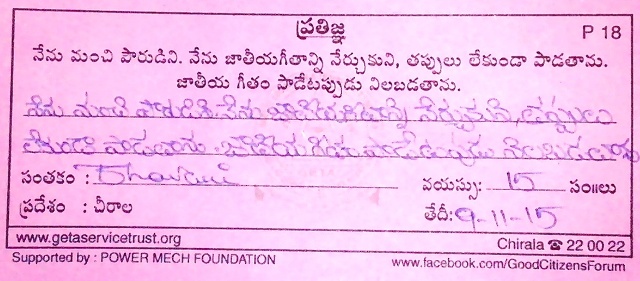 ప్రతిజ్ఞ P 18
నేను మంచి పౌరుడిని. నేను జాతీయగీతాన్ని నేర్చుకుని, తప్పులు లేకుండా పాడతాను.
జాతీయ గీతం పాడేటప్పుడు నిలబడతాను.
నేను మంచి పౌరుడిని నేను జాతీయగీతాన్ని నేర్చుకుని, తప్పులు
లేకుండా పాడతాను జాతీయ గీతం పాడేటప్పుడు నిలబడతాను
సంతకం : వయస్సు: 15 సం॥లు
ప్రదేశం : చీరాల తేదీ: 9-11-15
www.getaservicetrust.org Chirala ☎ 22 00 22
Supported by : POWER MECH FOUNDATION www.facebook.com/GoodCitizensForum